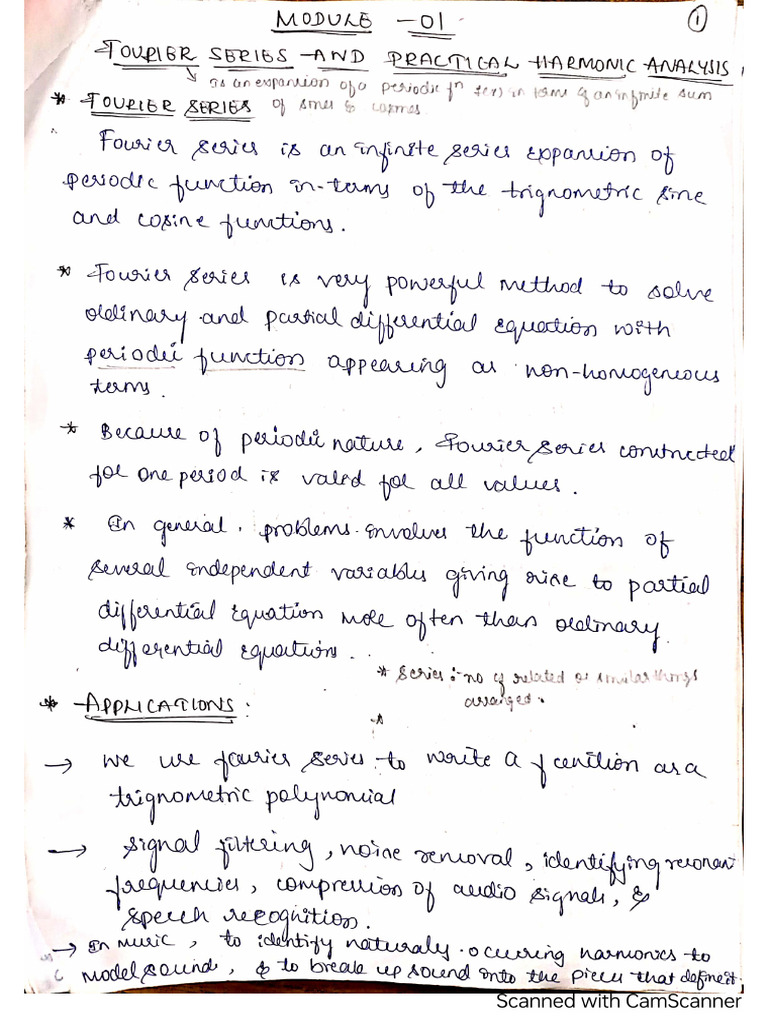 MODULE -01. 1
FOURIER SERIES AND PRACTICAL HARMONIC ANALYSIS
is an expansion of a periodic fn f(x) in terms of an infinite sum
* FOURIER SERIES of sines & cosines
Fourier series is an infinite series expansion of
periodic function in-terms of the trignometric sine
and cosine functions.
* Fourier series is very powerful method to solve
ordinary and partial differential equation with
periodic function appearing as non-homogeneous
terms.
* Because of periodic nature, Fourier series constructed
for one period is valid for all values.
* In general, problems involves the function of
several independent variables giving rise to partial
differential Equation more often than ordinary
differential Equations.
* Series :- no of related or similar things
arranged.
* APPLICATIONS:
→ We use fourier series to write a function as a
trignometric polynomial
→ Signal filtering, noise removal, identifying resonant
frequencies, compression of audio signals, &
speech recognition.
→ In music, to identify naturaly occuring harmonics to
model sound, & to break up sound into the pieces that define it.
Scanned with CamScanner